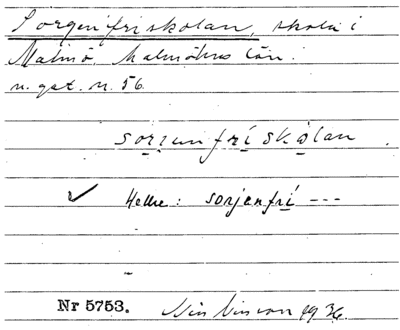 Sorgenfriskolan, skola i
Malmö, Malmöhus län.
n. gat. n. 56.
sorjenfrí skolan.
✓ Hellre: sorjenfrí ---
Nr 5753. 1936.